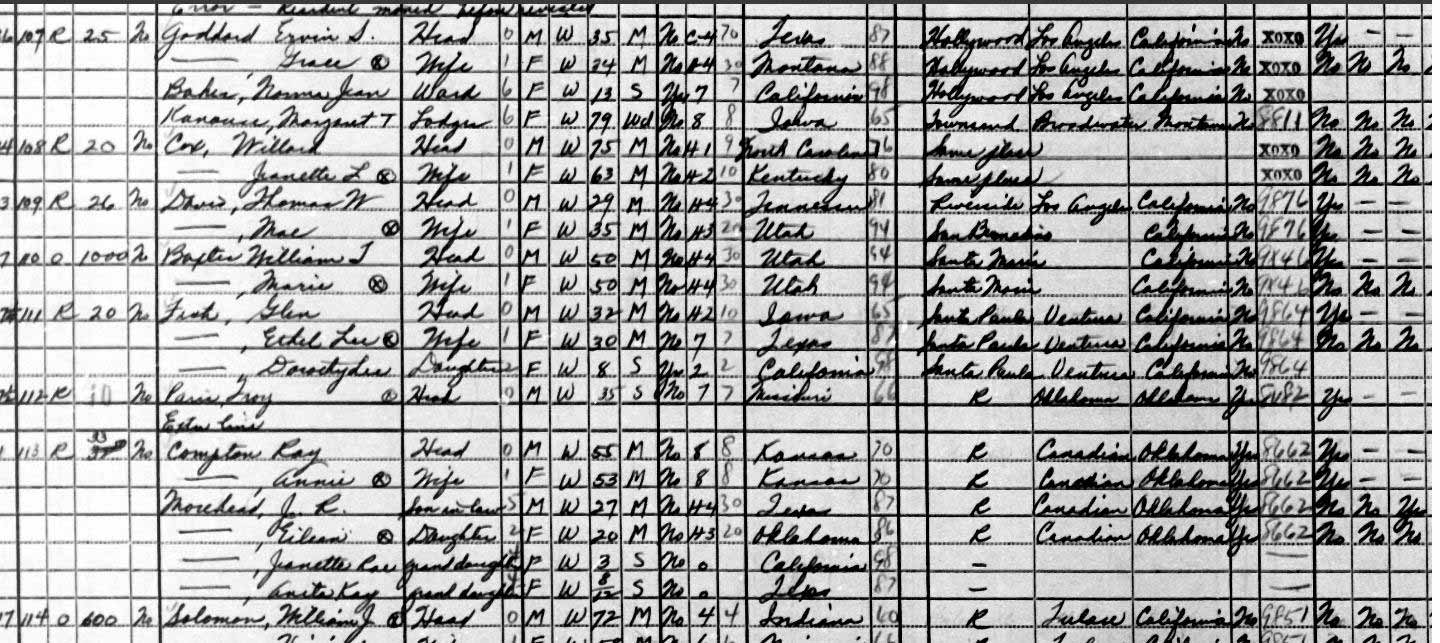 Error — Resident moved before revisited
107 R 25 No Goddard Ervin S. Head 0 M W 35 M No C-4 70 Texas 87 Hollywood Los Angeles California No XOXO Yes — —
— Grace ⓧ Wife 1 F W 24 M No H4 30 Montana 88 Hollywood Los Angeles California No XOXO No No No
Baker, Norma Jean Ward 6 F W 13 S Yes 7 7 California 98 Hollywood Los Angeles California No XOXO
Kanouse, Margaret T Lodger 6 F W 79 Wd No 8 8 Iowa 65 Townsend Broadwater Montana No 8811 No No No
108 R 20 No Cox, Willard Head 0 M W 75 M No H1 9 North Carolina 76 Same place XOXO No No No
— Jeanette L ⓧ Wife 1 F W 63 M No H2 10 Kentucky 80 Same place XOXO No No No
109 R 26 No Davis, Thomas W Head 0 M W 29 M No H4 30 Tennessee 81 Riverside Los Angeles California No 9876 Yes — —
—, Mae ⓧ Wife 1 F W 35 M No H3 20 Utah 94 San Bernardino California No 9876 Yes — —
110 O 1000 No Baxter William T Head 0 M W 50 M No H4 30 Utah 94 Santa Maria California No 9846 Yes — —
—, Marie ⓧ Wife 1 F W 50 M No H4 30 Utah 94 Santa Maria California No 9846 No No No
111 R 20 No Fish, Glen Head 0 M W 32 M No H2 10 Iowa 65 Santa Paula Ventura California No 9864 Yes — —
—, Ethel Lee ⓧ Wife 1 F W 30 M No 7 7 Texas 87 Santa Paula Ventura California No 9864 No No No
— Daughter 2 F W 8 S Yes 2 2 California 98 Santa Paula Ventura California No 9864
112 R 10 No Paris, Troy ⓧ Head 0 M W 35 S No 7 7 Missouri 66 R Oklahoma Oklahoma Yes 8682 Yes — —
Extra line
113 R No Compton Ray Head 0 M W 55 M No 8 8 Kansas 70 R Canadian Oklahoma Yes 8662 Yes — —
—, Annie ⓧ Wife 1 F W 53 M No 8 8 Kansas 70 R Canadian Oklahoma Yes 8662 Yes — —
Morehead, J. R. Son in law 5 M W 27 M No H4 30 Texas 87 R Canadian Oklahoma Yes 8662 No No Yes
—, Eileen ⓧ Daughter 2 F W 20 M No H3 20 Oklahoma 86 R Canadian Oklahoma Yes 8662 No No No
—, Jeanette Rae grand daughter F W 3 S No 0 California 98 —
—, Anita Kay grand daughter F W 8/12 S No 0 Texas 87 —
114 O 600 No Solomon, William J. ⓧ Head 0 M W 72 M No 4 4 Indiana 60 R Tulare California No 9851 No No No